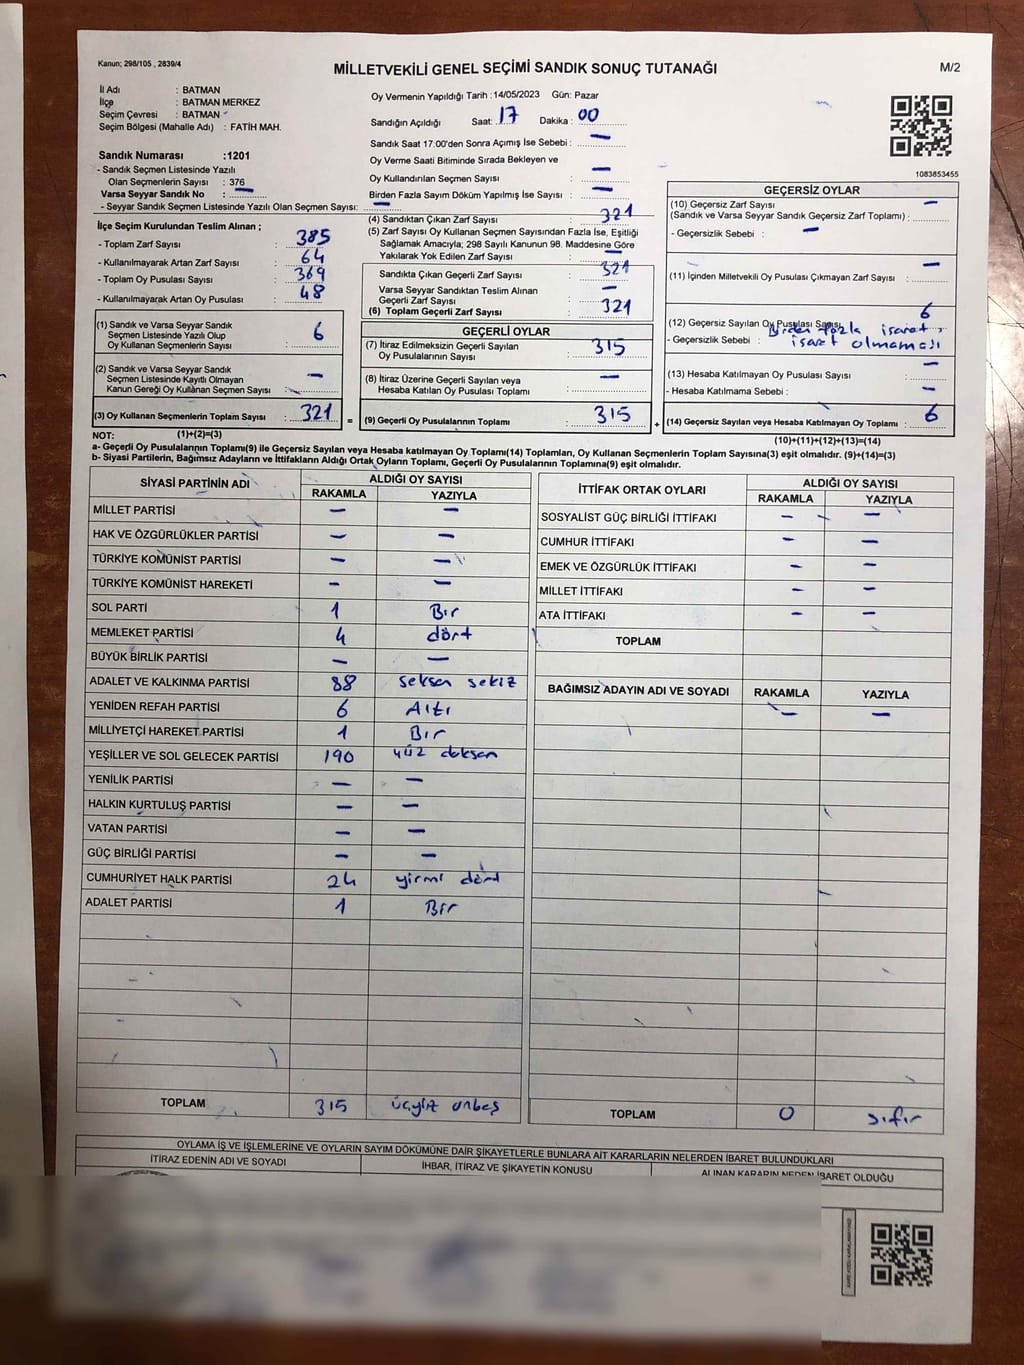 Kanun; 298/105 , 2839/4
MİLLETVEKİLİ GENEL SEÇİMİ SANDIK SONUÇ TUTANAĞI
M/2
İl Adı : BATMAN
İlçe : BATMAN MERKEZ
Seçim Çevresi : BATMAN
Seçim Bölgesi (Mahalle Adı) : FATİH MAH.
Sandık Numarası :1201
- Sandık Seçmen Listesinde Yazılı
Olan Seçmenlerin Sayısı : 376
Varsa Seyyar Sandık No : —
- Seyyar Sandık Seçmen Listesinde Yazılı Olan Seçmen Sayısı: —
İlçe Seçim Kurulundan Teslim Alınan ;
- Toplam Zarf Sayısı : 385
- Kullanılmayarak Artan Zarf Sayısı : 64
- Toplam Oy Pusulası Sayısı : 369
- Kullanılmayarak Artan Oy Pusulası : 48
(1) Sandık ve Varsa Seyyar Sandık
Seçmen Listesinde Yazılı Olup
Oy Kullanan Seçmenlerin Sayısı : 6
(2) Sandık ve Varsa Seyyar Sandık
Seçmen Listesinde Kayıtlı Olmayan
Kanun Gereği Oy Kullanan Seçmen Sayısı : —
(3) Oy Kullanan Seçmenlerin Toplam Sayısı : 321
(1)+(2)=(3)
Oy Vermenin Yapıldığı Tarih :14/05/2023 Gün: Pazar
Sandığın Açıldığı Saat: 17 Dakika : 00
Sandık Saat 17:00'den Sonra Açımış İse Sebebi : —
Oy Verme Saati Bitiminde Sırada Bekleyen ve
Oy Kullandırılan Seçmen Sayısı : —
Birden Fazla Sayım Döküm Yapılmış İse Sayısı : —
(4) Sandıktan Çıkan Zarf Sayısı : 321
(5) Zarf Sayısı Oy Kullanan Seçmen Sayısından Fazla İse, Eşitliği
Sağlamak Amacıyla; 298 Sayılı Kanunun 98. Maddesine Göre
Yakılarak Yok Edilen Zarf Sayısı : —
Sandıkta Çıkan Geçerli Zarf Sayısı : 321
Varsa Seyyar Sandıktan Teslim Alınan
Geçerli Zarf Sayısı : —
(6) Toplam Geçerli Zarf Sayısı : 321
GEÇERLİ OYLAR
(7) İtiraz Edilmeksizin Geçerli Sayılan
Oy Pusulalarının Sayısı : 315
(8) İtiraz Üzerine Geçerli Sayılan veya
Hesaba Katılan Oy Pusulası Toplamı : —
= (9) Geçerli Oy Pusulalarının Toplamı : 315
1083853455
GEÇERSİZ OYLAR
(10) Geçersiz Zarf Sayısı —
(Sandık ve Varsa Seyyar Sandık Geçersiz Zarf Toplamı) :
- Geçersizlik Sebebi : —
(11) İçinden Milletvekili Oy Pusulası Çıkmayan Zarf Sayısı : —
(12) Geçersiz Sayılan Oy Pusulası Sayısı 6
- Geçersizlik Sebebi : Birden fazla işaret,
işaret olmaması
(13) Hesaba Katılmayan Oy Pusulası Sayısı : —
- Hesaba Katılmama Sebebi : —
+ (14) Geçersiz Sayılan veya Hesaba Katılmayan Oy Toplamı : 6
(10)+(11)+(12)+(13)=(14)
NOT:
a- Geçerli Oy Pusulasının Toplamı(9) ile Geçersiz Sayılan veya Hesaba katılmayan Oy Toplamı(14) Toplamları, Oy Kullanan Seçmenlerin Toplam Sayısına(3) eşit olmalıdır. (9)+(14)=(3)
b- Siyasi Partilerin, Bağımsız Adayların ve İttifakların Aldığı Ortak Oyların Toplamı, Geçerli Oy Pusulalarının Toplamına(9) eşit olmalıdır.
SİYASİ PARTİNİN ADI ALDIĞI OY SAYISI
RAKAMLA YAZIYLA
MİLLET PARTİSİ — —
HAK VE ÖZGÜRLÜKLER PARTİSİ — —
TÜRKİYE KOMÜNİST PARTİSİ — —
TÜRKİYE KOMÜNİST HAREKETİ — —
SOL PARTİ 1 Bir
MEMLEKET PARTİSİ 4 dört
BÜYÜK BİRLİK PARTİSİ — —
ADALET VE KALKINMA PARTİSİ 88 seksen sekiz
YENİDEN REFAH PARTİSİ 6 Altı
MİLLİYETÇİ HAREKET PARTİSİ 1 Bir
YEŞİLLER VE SOL GELECEK PARTİSİ 190 yüz doksan
YENİLİK PARTİSİ — —
HALKIN KURTULUŞ PARTİSİ — —
VATAN PARTİSİ — —
GÜÇ BİRLİĞİ PARTİSİ — —
CUMHURİYET HALK PARTİSİ 24 yirmi dört
ADALET PARTİSİ 1 Bir
TOPLAM 315 üçyüz onbeş
İTTİFAK ORTAK OYLARI ALDIĞI OY SAYISI
RAKAMLA YAZIYLA
SOSYALİST GÜÇ BİRLİĞİ İTTİFAKI — —
CUMHUR İTTİFAKI — —
EMEK VE ÖZGÜRLÜK İTTİFAKI — —
MİLLET İTTİFAKI — —
ATA İTTİFAKI — —
TOPLAM
BAĞIMSIZ ADAYIN ADI VE SOYADI RAKAMLA YAZIYLA
— —
TOPLAM 0 sıfır
OYLAMA İŞ VE İŞLEMLERİNE VE OYLARIN SAYIM DÖKÜMÜNE DAİR ŞİKAYETLERLE BUNLARA AİT KARARLARIN NELERDEN İBARET BULUNDUKLARI
İTİRAZ EDENİN ADI VE SOYADI İHBAR, İTİRAZ VE ŞİKAYETİN KONUSU ALINAN KARARIN NEDEN İBARET OLDUĞU